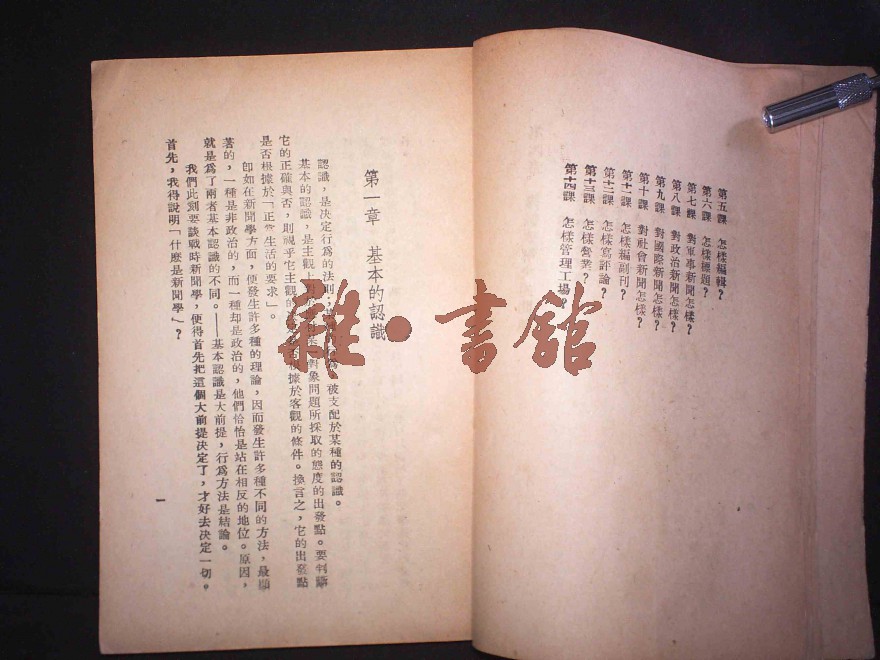 第五課　怎樣編輯？
第六課　怎樣標題？
第七課　對軍事新聞怎樣？
第八課　對政治新聞怎樣？
第九課　對國際新聞怎樣？
第十課　對社會新聞怎樣？
第十一課　怎樣編副刊？
第十二課　怎樣寫評論？
第十三課　怎樣營業？
第十四課　怎樣管理工場？
第一章　基本的認識
認識，是决定行爲的法則；被支配於某種的認識。
基本的認識，是主觀上對象問題所採取的態度的出發點。要判斷
它的正確與否，則視乎它主觀的根據於客觀的條件。換言之，它的出發點
是否根據於「正當生活的要求」。
卽如在新聞學方面，便發生許多種的理論，因而發生許多種不同的方法，最顯
著的，一種是非政治的，而一種却是政治的，他們恰恰是站在相反的地位。原因，
就是爲了兩者基本認識的不同。——基本認識是大前提，行爲方法是結論。
我們此刻要談戰時新聞學，便得首先把這個大前提决定了，才好去决定一切。
首先，我得說明「什麽是新聞學」？
一
雜·書館